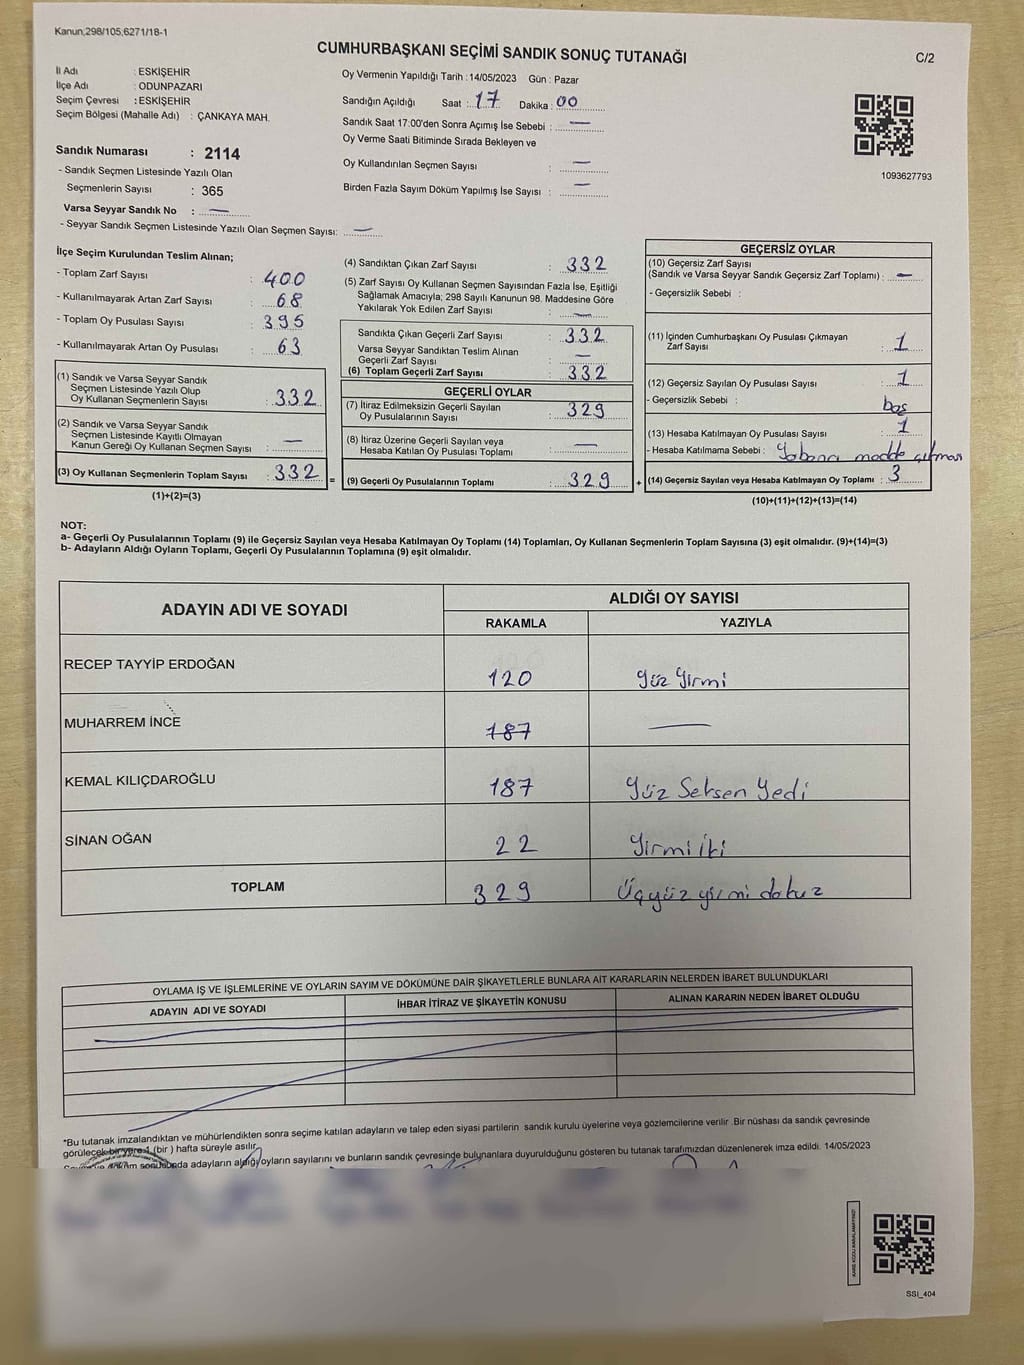 Kanun;298/105;6271/18-1
CUMHURBAŞKANI SEÇİMİ SANDIK SONUÇ TUTANAĞI
C/2
İl Adı : ESKİŞEHİR
İlçe Adı : ODUNPAZARI
Seçim Çevresi : ESKİŞEHİR
Seçim Bölgesi (Mahalle Adı) : ÇANKAYA MAH.
Sandık Numarası : 2114
- Sandık Seçmen Listesinde Yazılı Olan
Seçmenlerin Sayısı : 365
Varsa Seyyar Sandık No : —
- Seyyar Sandık Seçmen Listesinde Yazılı Olan Seçmen Sayısı: —
Oy Vermenin Yapıldığı Tarih :14/05/2023 Gün : Pazar
Sandığın Açıldığı Saat : 17 Dakika : 00
Sandık Saat 17:00'den Sonra Açımış İse Sebebi : —
Oy Verme Saati Bitiminde Sırada Bekleyen ve
Oy Kullandırılan Seçmen Sayısı : —
Birden Fazla Sayım Döküm Yapılmış İse Sayısı : —
1093627793
İlçe Seçim Kurulundan Teslim Alınan;
- Toplam Zarf Sayısı : 400
- Kullanılmayarak Artan Zarf Sayısı : 68
- Toplam Oy Pusulası Sayısı : 395
- Kullanılmayarak Artan Oy Pusulası : 63
(1) Sandık ve Varsa Seyyar Sandık
Seçmen Listesinde Yazılı Olup
Oy Kullanan Seçmenlerin Sayısı : 332
(2) Sandık ve Varsa Seyyar Sandık
Seçmen Listesinde Kayıtlı Olmayan
Kanun Gereği Oy Kullanan Seçmen Sayısı : —
(3) Oy Kullanan Seçmenlerin Toplam Sayısı : 332 =
(1)+(2)=(3)
(4) Sandıktan Çıkan Zarf Sayısı : 332
(5) Zarf Sayısı Oy Kullanan Seçmen Sayısından Fazla İse, Eşitliği
Sağlamak Amacıyla; 298 Sayılı Kanunun 98. Maddesine Göre
Yakılarak Yok Edilen Zarf Sayısı : —
Sandıkta Çıkan Geçerli Zarf Sayısı : 332
Varsa Seyyar Sandıktan Teslim Alınan
Geçerli Zarf Sayısı : —
(6) Toplam Geçerli Zarf Sayısı : 332
GEÇERLİ OYLAR
(7) İtiraz Edilmeksizin Geçerli Sayılan
Oy Pusulalarının Sayısı : 329
(8) İtiraz Üzerine Geçerli Sayılan veya
Hesaba Katılan Oy Pusulası Toplamı : —
(9) Geçerli Oy Pusulalarının Toplamı : 329 +
GEÇERSİZ OYLAR
(10) Geçersiz Zarf Sayısı
(Sandık ve Varsa Seyyar Sandık Geçersiz Zarf Toplamı) : —
- Geçersizlik Sebebi :
(11) İçinden Cumhurbaşkanı Oy Pusulası Çıkmayan
Zarf Sayısı : 1
(12) Geçersiz Sayılan Oy Pusulası Sayısı : 1
- Geçersizlik Sebebi : boş
(13) Hesaba Katılmayan Oy Pusulası Sayısı : 1
- Hesaba Katılmama Sebebi : Yabancı madde çıkması
(14) Geçersiz Sayılan veya Hesaba Katılmayan Oy Toplamı : 3
(10)+(11)+(12)+(13)=(14)
NOT:
a- Geçerli Oy Pusulalarının Toplamı (9) ile Geçersiz Sayılan veya Hesaba Katılmayan Oy Toplamı (14) Toplamları, Oy Kullanan Seçmenlerin Toplam Sayısına (3) eşit olmalıdır. (9)+(14)=(3)
b- Adayların Aldığı Oyların Toplamı, Geçerli Oy Pusulalarının Toplamına (9) eşit olmalıdır.
ADAYIN ADI VE SOYADI
ALDIĞI OY SAYISI
RAKAMLA YAZIYLA
RECEP TAYYİP ERDOĞAN 120 Yüz Yirmi
MUHARREM İNCE 187 —
KEMAL KILIÇDAROĞLU 187 Yüz Seksen Yedi
SİNAN OĞAN 22 Yirmi İki
TOPLAM 329 Üçyüz yirmi dokuz
OYLAMA İŞ VE İŞLEMLERİNE VE OYLARIN SAYIM VE DÖKÜMÜNE DAİR ŞİKAYETLERLE BUNLARA AİT KARARLARIN NELERDEN İBARET BULUNDUKLARI
ADAYIN ADI VE SOYADI İHBAR İTİRAZ VE ŞİKAYETİN KONUSU ALINAN KARARIN NEDEN İBARET OLDUĞU
*Bu tutanak imzalandıktan ve mühürlendikten sonra seçime katılan adayların ve talep eden siyasi partilerin sandık kurulu üyelerine veya gözlemcilerine verilir .Bir nüshası da sandık çevresinde
görülecek bir yere 1 (bir ) hafta süreyle asılır.
sonucunda adayların aldığı oyların sayılarını ve bunların sandık çevresinde bulunanlara duyurulduğunu gösteren bu tutanak tarafımızdan düzenlenerek imza edildi. 14/05/2023
SSI_404